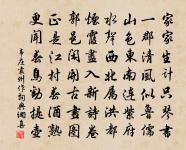 家家生計只琴書
一郡清風似魯儒
山色東南連紫府
水聲西北屬洪都
煙霞盡入新詩卷
郭邑閑開古畫圖
正是江村春酒熟
更聞春鳥勸提壺
韋莊袁州作詞典網